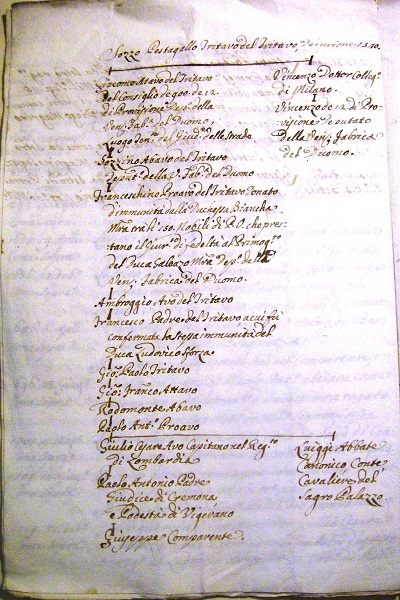 Sozzo Pestagallo Tritavo del Tritavo Decurione 1340.
Giacomo Atavo del Tritavo
del Consiglio de 900. de 12.
di Provisione della
Ven: Fab.ª del Duomo,
Luogoten.te del Giud.e delle strade
Vincenzo Dottor Colleg.º
di Milano.
Vincenzo de 12. di Pro-
visione Deputato
della Ven: Fabrica
del Duomo.
Sozzino Abavo del Tritavo
della V. Fab.ª del Duomo
Franceschino Proavo del Tritavo Donato
d'immunità dalla Duchessa Biancha
M.ra tra li 150. Nobili di P. O. che pres-
tano il Giur.to di fedeltà al Primog.to
del Duca Galeazo M.ra Dep.to della
Ven: Fabrica del Duomo.
Ambroggio Avo del Tritavo
Francesco Padre del Tritavo a cui fù
confermata la stessa immunità dal
Duca Ludovico Sforza
Gio: Paolo Tritavo
Gio: Franco Attavo
Rodomonte Abavo
Paolo Ant.º Proavo
Giulio Cesare Avo Capitano nel Reg.to
di Lombardia
Luiggi Abbate
Canonico Conte
Cavaliere del
Sagro Palazzo
Paolo Antonio Padre
Giudice di Cremona
e Podestà di Vigevano
Giuseppe Comparente.